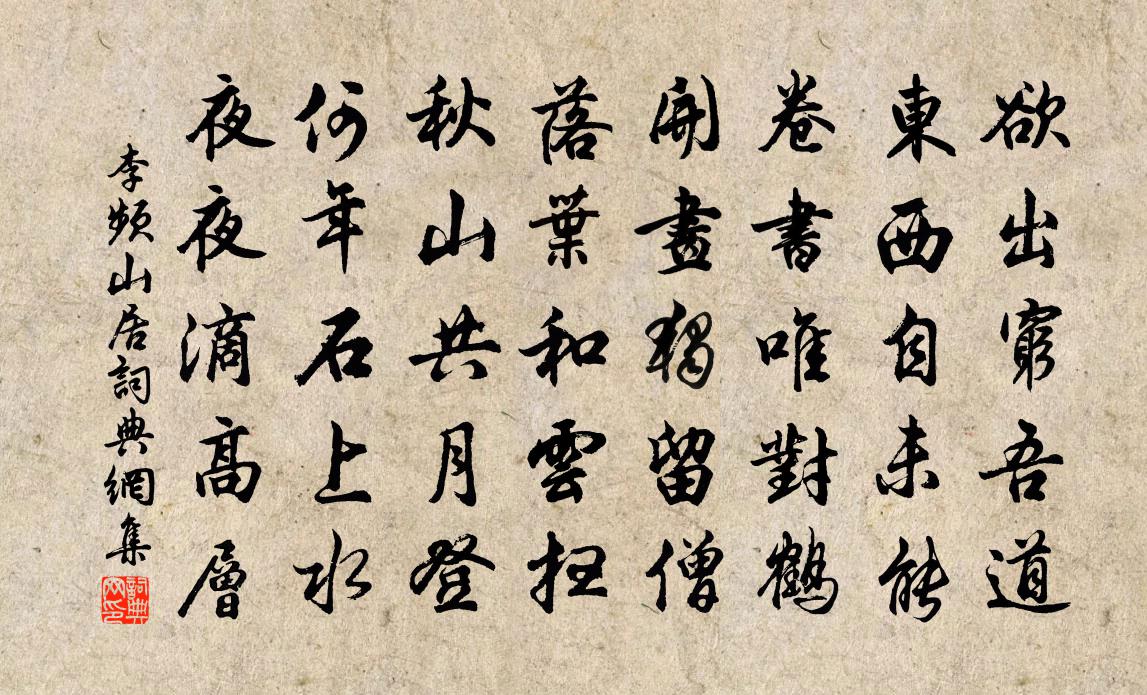 欲出窮吾道
東西自未能
卷書唯對鶴
開畫獨留僧
落葉和雲掃
秋山共月登
何年石上水
夜夜滴高層
李頻山居詞典網集
詞典网印